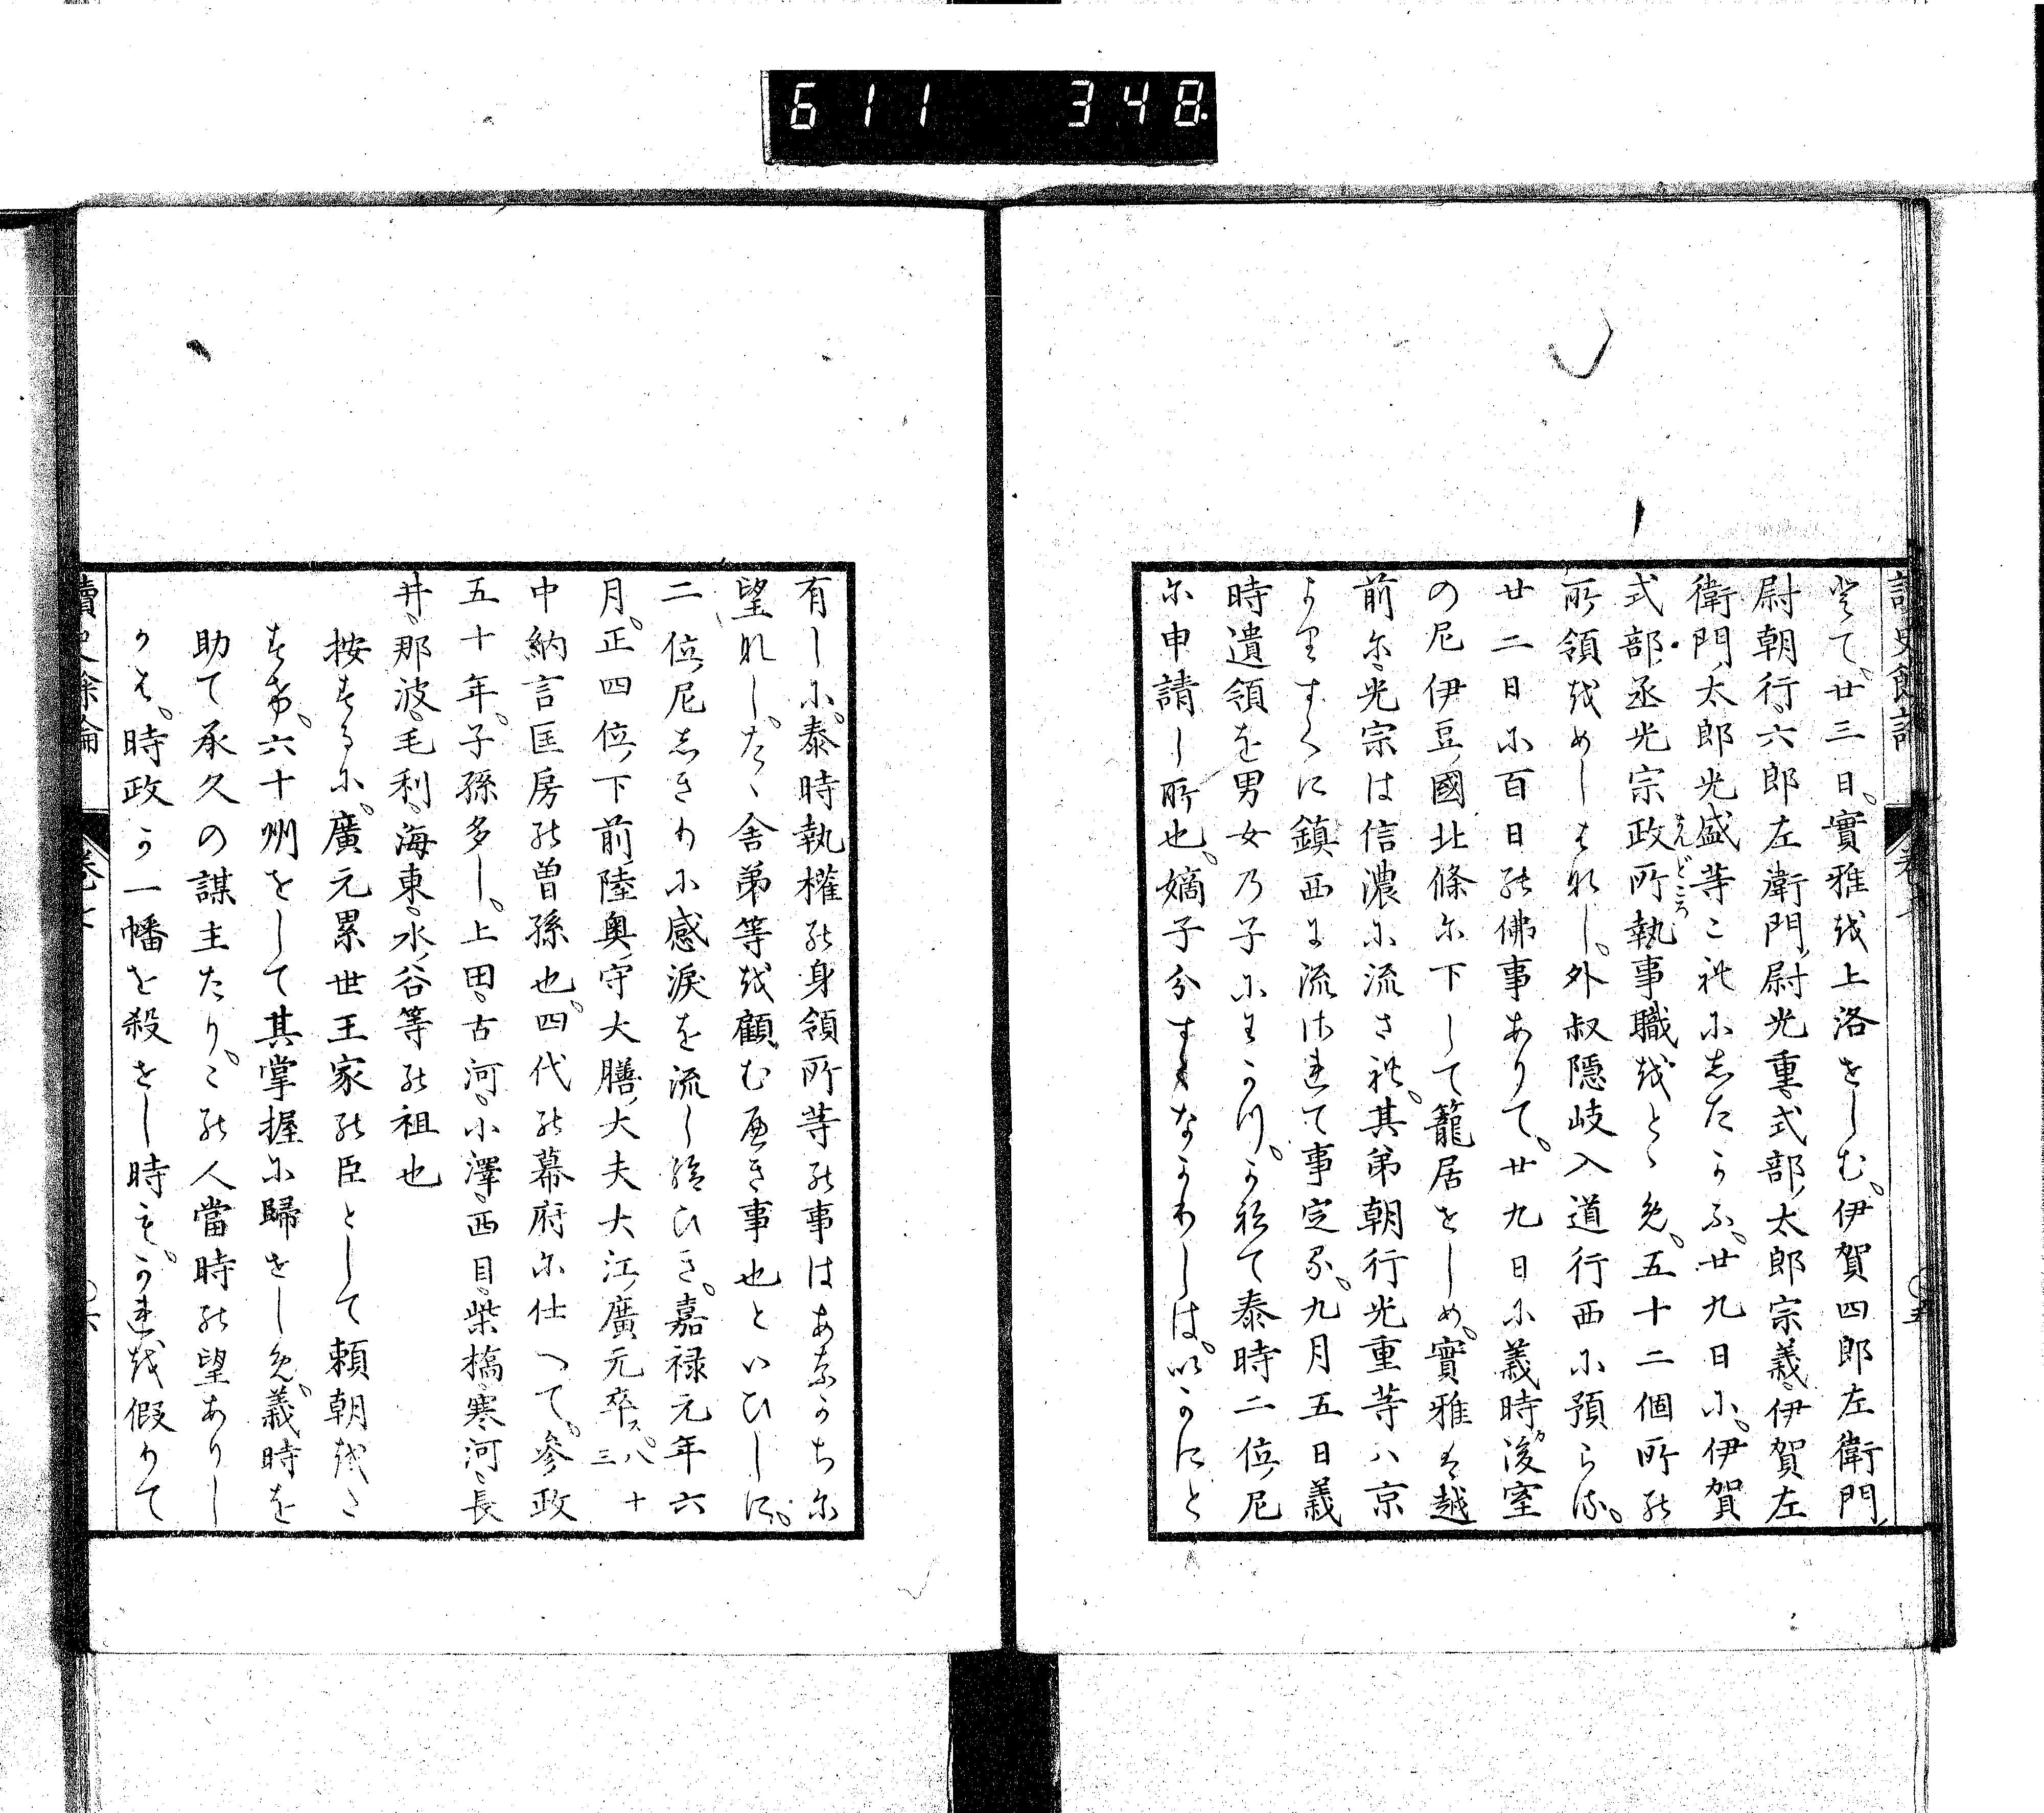 611 348
讀史餘論 卷七 〇五
登て。廿三日。實雅を上洛せしむ。伊賀四郎左衛門
尉朝行。六郎左衛門尉光重。式部太郎宗義。伊賀左
衛門太郎光盛等これにしたかふ。廿九日に。伊賀
式部丞光宗政所執事職をとゝめ。五十二個所の
まんどころ
所領をめしはなし。外叔隠岐入道行西に預らる。
廿二日に百日の佛事ありて。廿九日に義時後室
の尼伊豆國北條に下して籠居せしめ。實雅は越
前に。光宗は信濃に流さる。其弟朝行光重等ハ京
よりすくに鎮西に流されて事定る。九月五日義
時遺領を男女の子にわかつ。かねて泰時二位尼
に申請し所也。嫡子分すくなかりしは。いかにと
有しに。泰時執權の身領所等の事はあなかちに
望なし。たゝ舎弟等を顧むへき事也といひしに。
二位尼しきりに感涙を流し給ひき。嘉禄元年六
月。正四位下前陸奥守大膳大夫大江廣元卒ス。八十三
中納言匡房の曽孫也。四代の幕府に仕へて。參政
五十年。子孫多し。上田。古河。小澤。西目。柴橋。寒河。長
井。那波。毛利。海東。水谷等の祖也
按するに。廣元累世王家の臣として頼朝をさ
すけ。六十州をして其掌握に歸せしめ。義時を
助て承久の謀主たり。この人當時の望ありし
かは。時政か一幡を殺せし時も。かれを假りて
讀史餘論 卷七 〇六